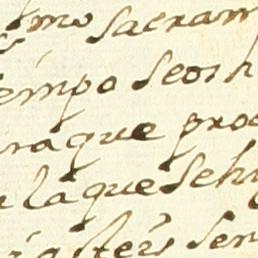 mo sacram
empo seos h
raque proc
la que sehi
sters sen